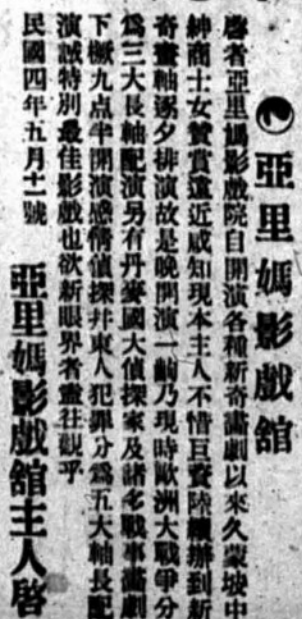 亞里媽影戲舘
啓者亞里媽影戲院自開演各種新奇畵劇以來久蒙坡中
紳商士女贊賞遠近咸知現本主人不惜巨資陸續辦到新
奇畫軸逐夕排演故是晚開演一齣乃現時歐洲大戰爭分
爲三大長軸配演另有丹麥國大偵探家及諸名戰事畵劇
下橛九点半開演感情偵探井東人犯罪分爲五大軸長配
演誠特別最佳影戲也欲新眼界者盍往觀乎
民國四年五月十一號
亞里媽影戲舘主人啓